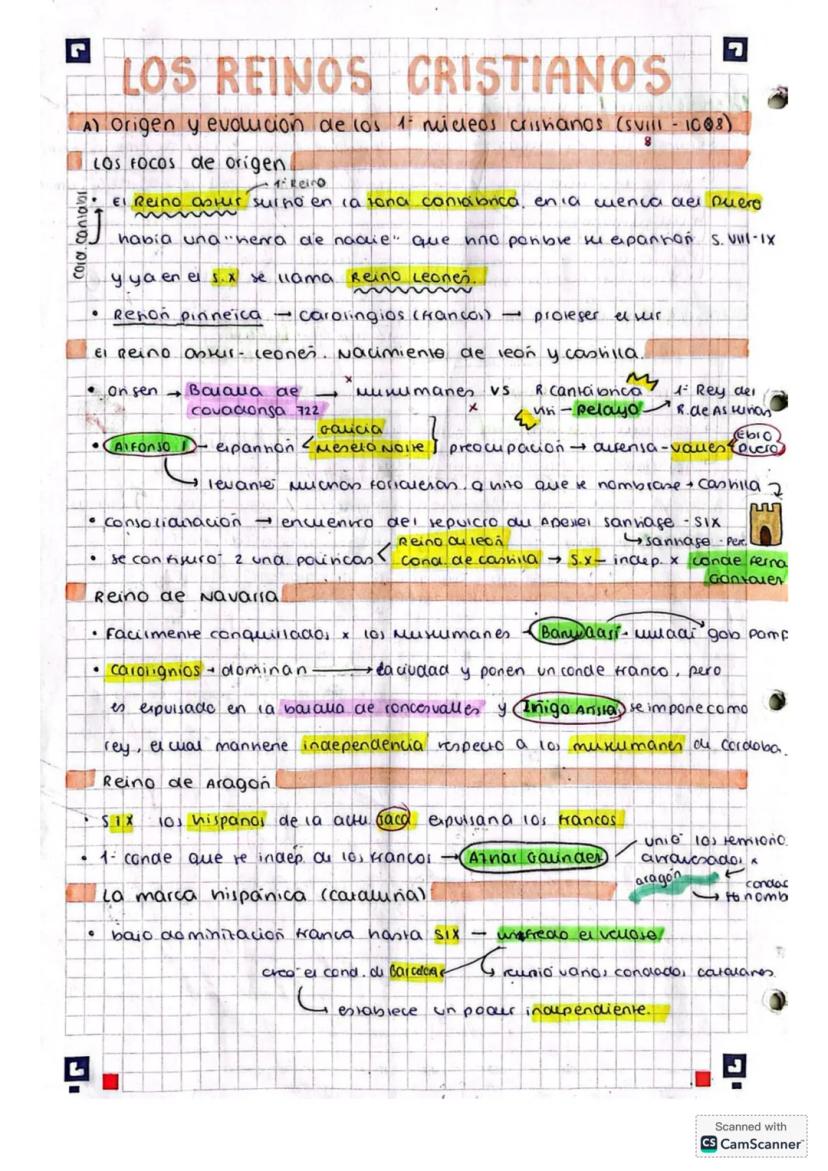 LOS REINOS CRISTIANOS
A) Origen y evolución de los 1º núcleos cristianos (SVIII - 1008)
8
LOS FOCOS de origen
1º Reino
• El Reino astur surgió en la zona cantábrica, en la cuenca del Duero
cord. cantabr.
había una "tierra de nadie" que hizo posible su expansión S. VIII-IX
y ya en el S.X se llama Reino Leonés.
• Región pirineica → carolingios (francos) → proteger el sur
El Reino astur-leonés. Nacimiento de león y castilla.
• Origen → Batalla de covadonga 722 → musulmanes vs R. Cantábrica
visi - Pelayo → 1º Rey del R. de Asturias
• Alfonso I - expansión < Galicia Meseta Norte } preocupación → defensa - valles < Ebro Duero
→ levanté muchas fortalezas. q hizo que se nombrase → castilla
• consolidación → encuentro del sepulcro del Apóstol santiago - SIX
→ santiago - Per.
• se configuró 2 una. políticas < Reino de león Cond. de castilla → S.X - indep. x conde ferna Gonzalez
Reino de Navarra
• Fácilmente conquistados x los musulmanes - Banu Qasi - muladí gob pamp
• carolignios → dominan → la ciudad y ponen un conde franco, pero
es expulsado en la batalla de roncesvalles y Iñigo Arista, se impone como
rey, el cual mantiene independencia respecto a los musulmanes de cordoba.
Reino de Aragón
• SIX los hispanos de la actu. Jaca expulsan a los francos
• 1º conde que se indep. de los francos → Aznar Galindez
unió los territorio. atravesados x
aragón
condad
→ to nomb
La marca hispánica (cataluña)
• bajo dominitación franca hasta SIX - wifredo el velloso
creó el cond. de Barcelona
→ reunió varios condados catalanes
→ establece un poder independiente.
Scanned with
CS CamScanner